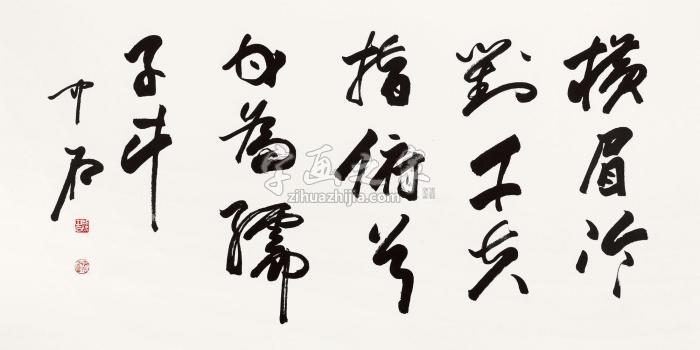 橫眉冷
對千夫
指俯首
甘為孺
子牛
中石
字画之家
zihuazhijia.com